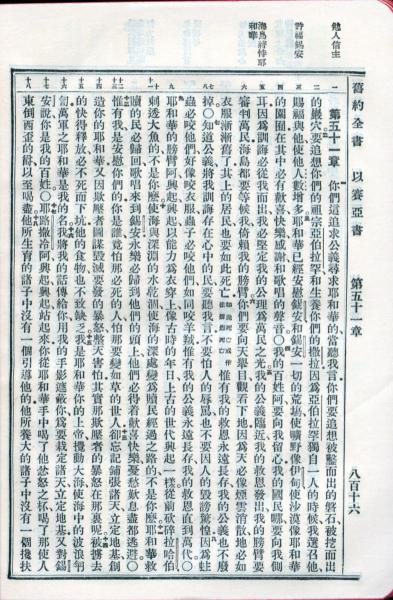 舊約全書 以賽亞書 第五十一章 八百十六
勉人信主
許福錫安
海島將恃耶和華
第五十一章 你們這追求公義尋求耶和華的當聽我言你們要追想被鑿而出的磐石被挖而出
的巖穴要追想你們的祖宗亞伯拉罕和生養你們的撒拉因為亞伯拉罕獨自一人的時候我選召他
賜福與他使他人數增多耶和華已經安慰錫安和錫安一切的荒場使曠野像伊甸使沙漠像耶和華
的園囿在其中必有歡喜快樂感謝和歌唱的聲音○我的百姓阿要向我留心我的國民哪要向我側
耳因為訓誨必從我而出我必堅定我的公理為萬民之光我的公義臨近我的救恩發出我的膀臂要
審判萬民海島都要等候我倚賴我的膀臂你們要向天舉目觀看下地因為天必像煙雲消散地必如
衣服漸漸舊了其上的居民也要如此死亡如此死亡或作像蠓蟲死亡惟有我的救恩永遠長存我的公義也不廢
掉○知道公義將我訓誨存在心中的民要聽我言不要怕人的辱罵也不要因人的毀謗驚惶因為蛀
蟲必咬他們好像咬衣服蟲子必咬他們如同咬羊絨惟有我的公義永遠長存我的救恩直到萬代○
耶和華的膀臂阿興起興起以能力為衣穿上像古時的年日上古的世代興起一樣從前砍碎拉哈伯
刺透大魚的不是你麼使海與深淵的水乾涸使海的深處變為贖民經過之路的不是你麼耶和華救
贖的民必歸回歌唱來到錫安永樂必歸到他們的頭上他們必得着歡喜快樂憂愁歎息盡都逃避○
惟有我是安慰你們的你是誰竟怕那必死的人怕那要變如草的世人卻忘記鋪張諸天立定地基創
造你的耶和華又因欺壓者圖謀毀滅要發的暴怒整天害怕其實那欺壓者的暴怒在那裏呢被擄去
的快得釋放必不死而下坑他的食物也不致缺乏我是耶和華你的上帝攪動大海使海中的波浪匉
訇萬軍之耶和華是我的名我將我的話傳給你用我的手影遮蔽你為要栽定諸天立定地基又對錫
安說你是我的百姓○耶路撒冷阿興起興起站起來你從耶和華手中喝了他忿怒之杯喝了那使人
東倒西歪的爵以至喝盡他所生育的諸子中沒有一個引導他的他所養大的諸子中沒有一個攙扶